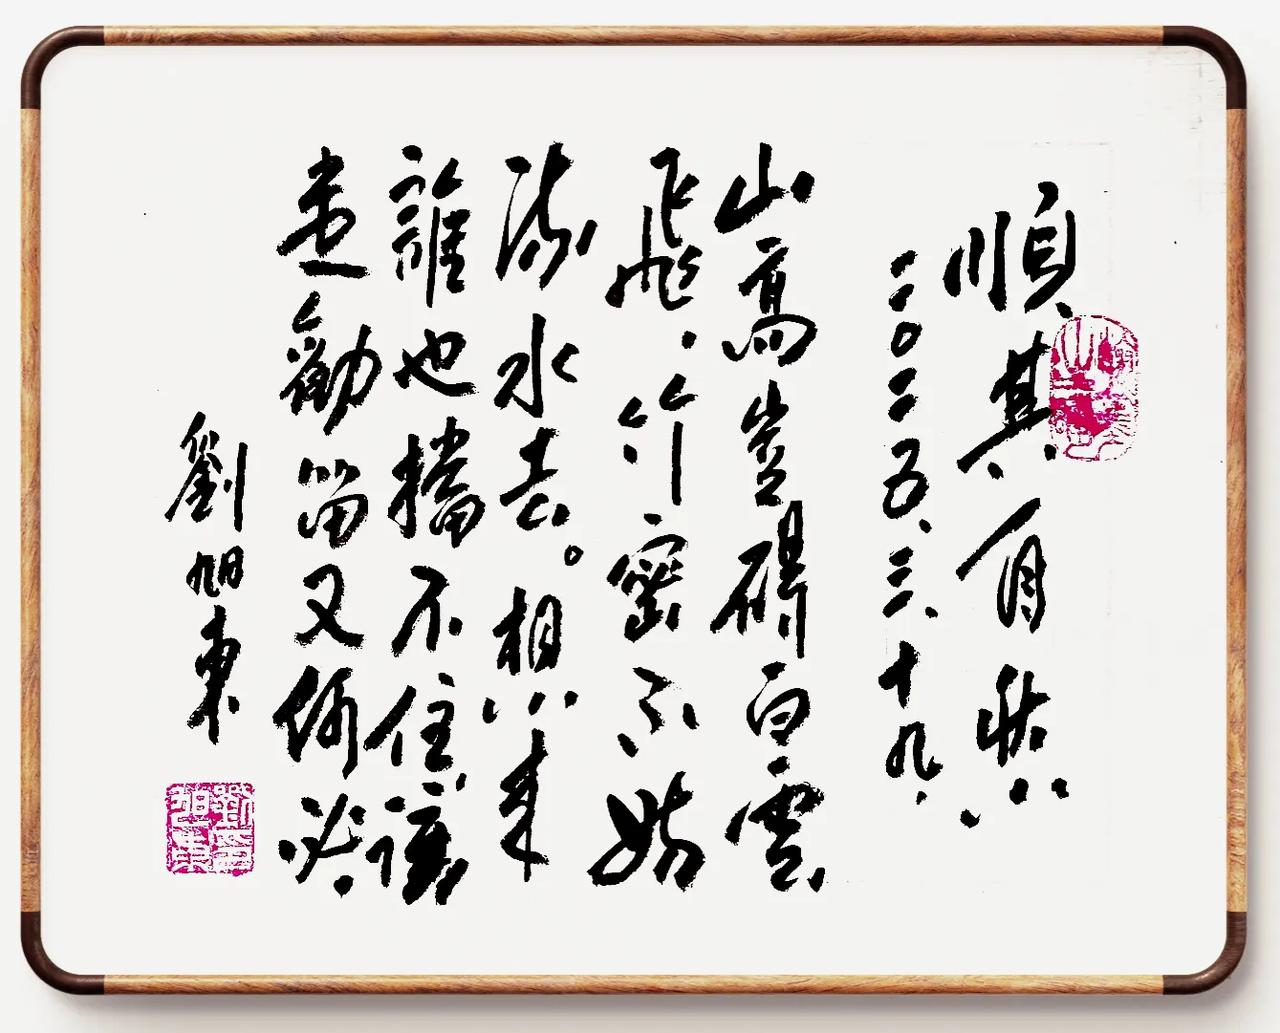 順其自然
二〇二五、三、十九、
山高豈礙白雲
飛、竹密不妨
流水去。想來
誰也擋不住讓
勸留又何必
劉旭東
劉印旭東